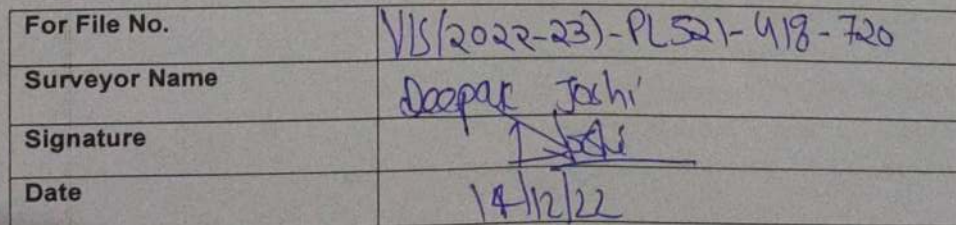 For File No. VIS(2022-23)-PL521-418-720
Surveyor Name Deepak Joshi
Signature DJoshi
Date 14/12/22